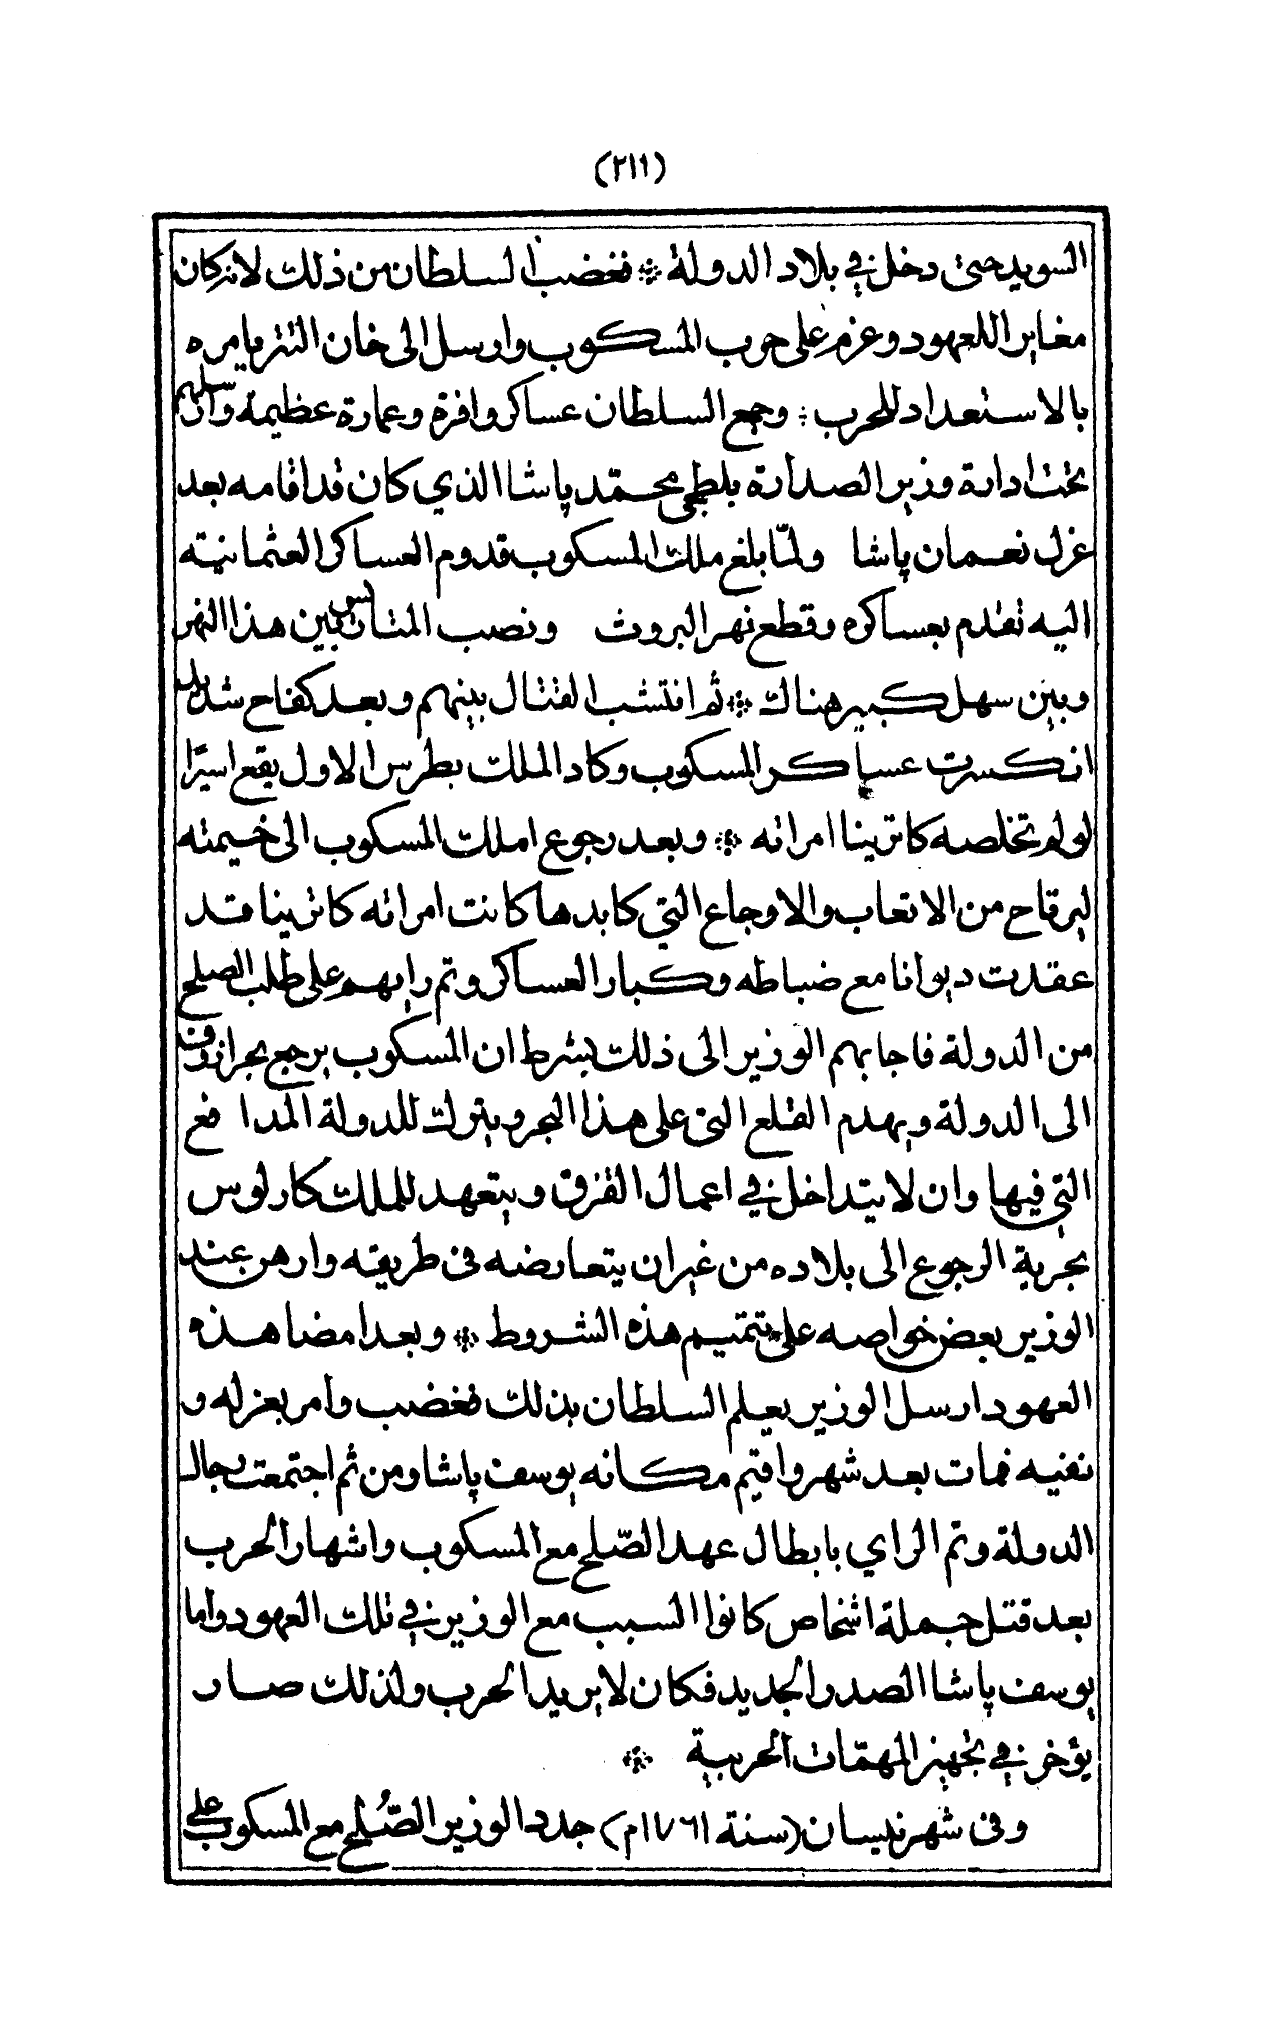 (٢١١)
السويد حتى دخل في بلاد الدولة ※ فغضب السلطان من ذلك لانه كان
مغايرا للعهود وعزم على حرب المسكوب وارسل الى خان التتر يامره
بالاستعداد للحرب ※ وجمع السلطان عساكر وافرة وعمارة عظيمة وارسلهم
تحت ادارة وزير الصدارة بلطجي محمّد پاشا الذي كان قد اقامه بعد
عزل نعمان پاشا ولمّا بلغ ملك المسكوب قدوم العساكر العثمانية
اليه تقدم بعساكره وقطع نهر البروث ونصب المتاريس بين هذا النهر
وبين سهل كبير هناك ※ ثم انتشب القتال بينهم وبعد كفاح شديد
انكسرت عساكر المسكوب وكاد الملك بطرس الاول يقع اسيرًا
لو لم تخلصه كاترينا امراته ※ وبعد رجوع املك المسكوب الى خيمته
ليرقاح من الاتعاب والاوجاع التي كابدها كانت امراته كاترينا قد
عقدت ديوانا مع ضباطه وكبار العساكر وتم رايهم على طلب الصلح
من الدولة فاجابهم الوزير الى ذلك بشرط ان المسكوب يرجع بحر ازوف
الى الدولة ويهدم القلع التي على هذا البحر ويترك للدولة المدافع
التي فيها وان لا يتداخل في اعمال القزق ويتعهد للملك كارلوس
بحرية الرجوع الى بلاده من غير ان يتعارضه في طريقه وارهن عند
الوزير بعض خواصه على تتميم هذه الشروط ※ وبعد امضا هذه
العهود ارسل الوزير يعلم السلطان بذلك فغضب وامر بعزله و
نفيه فمات بعد شهر واقيم مكانه يوسف پاشا ومن ثم اجتمعت رجال
الدولة وتم الراي بابطال عهد الصّلح مع المسكوب واشهار الحرب
بعد قتل جملة اشخاص كانوا السبب مع الوزير في تلك العهود واما
يوسف پاشا الصدر الجديد فكان لا يريد الحرب ولذلك صار
يؤخر في تجهيز المهمّات الحربية ※
وفي شهر نيسان (سنة ١٧٦١م) جدد الوزير الصّلح مع المسكوب على